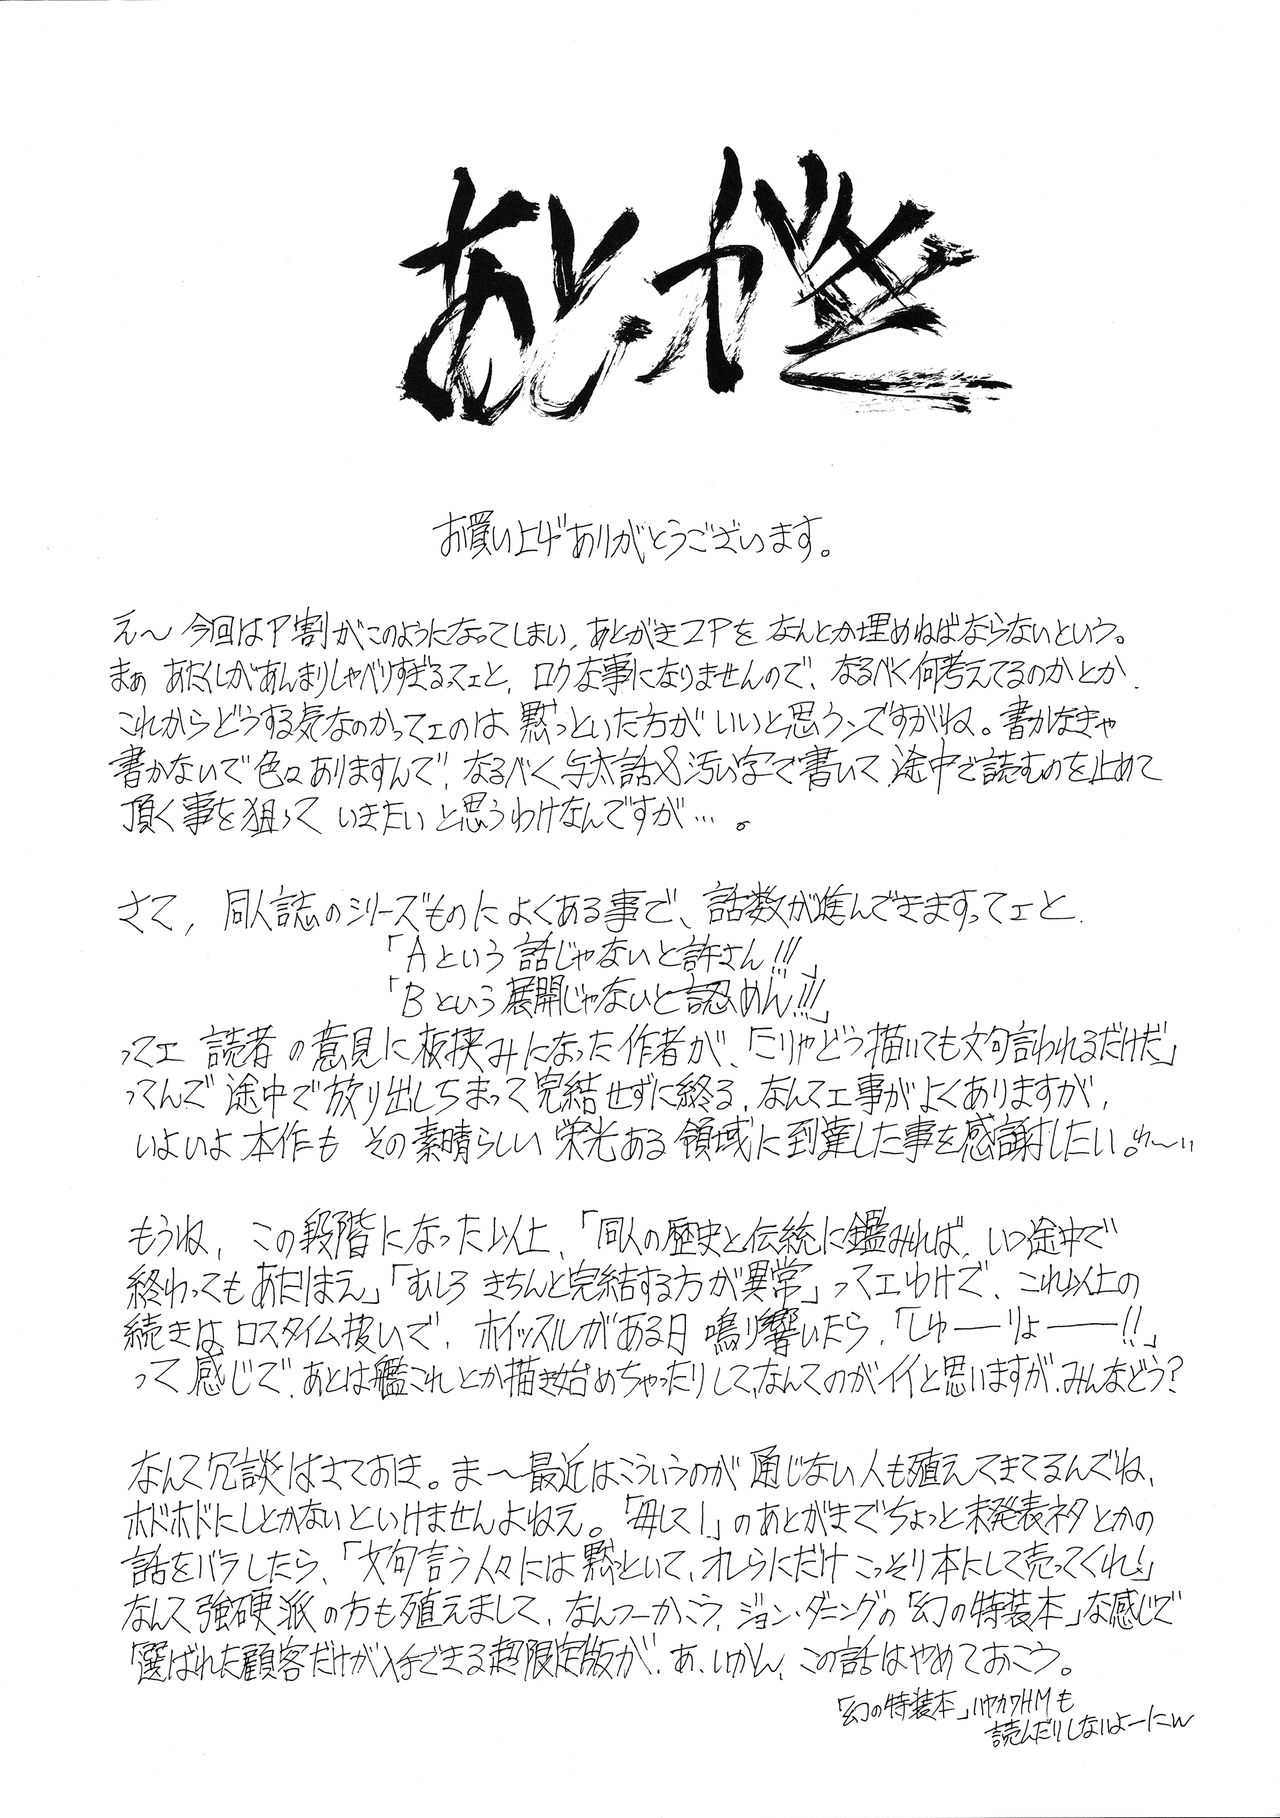 あとがき
お買い上げありがとうございます。
え〜今回はP割がこのようになってしまい、あとがき2Pをなんとか埋めねばならないという。
まぁあたくしがあんまりしゃべりすぎるってェと、ロクな事になりませんので、なるべく何考えてるのかとか
これからどうする気なのかってェのは黙っといた方がいいと思うンですがね。書かなきゃ
書かないで色々ありますんで、なるべく与太話&汚い字で書いて途中で読むのを止めて
頂く事を狙っていきたいと思うわけなんですが…。
さて、同人誌のシリーズものによくある事で、話数が進んできますってェと、
「Aという話じゃないと許さん!!!」
「Bという展開じゃないと認めん!!!」
ってェ読者の意見に板挟みになった作者が、「こりゃどう描いても文句言われるだけだ」
ってんで途中で放り出しちまって完結せずに終る、なんてェ事がよくありますが、
いよいよ本作もその素晴らしい栄光ある領域に到達した事を感謝したい。わ〜い
もうね、この段階になった以上、「同人の歴史と伝統に鑑みれば、いつ途中で
終わってもあたりまえ」「むしろきちんと完結する方が異常」ってェわけで、これ以上の
続きはロスタイム扱いで、ホイッスルがある日鳴り響いたら、「しゅーりょー!!」
って感じで、あとは艦これとか描き始めちゃったりして、なんてのがイイと思いますが、みんなどう?
なんて冗談はさておき。ま〜最近はこういうのが通じない人も殖えてきてるんでね、
ホドホドにしとかないといけませんよねえ。「毎して!」のあとがきでちょっと未発表ネタとかの
話をバラしたら、「文句言う人々には黙っといて、オレらにだけこっそり本にして売ってくれ!」
なんて強硬派の方も殖えまして、なんつーかこう、ジョン・ダニングの「幻の特装本」な感じで
「選ばれた顧客だけが入手できる超限定版が、あ、いかん、この話はやめておこう。
「幻の特装本」ハヤカワHMも
読んだりしないよーにw